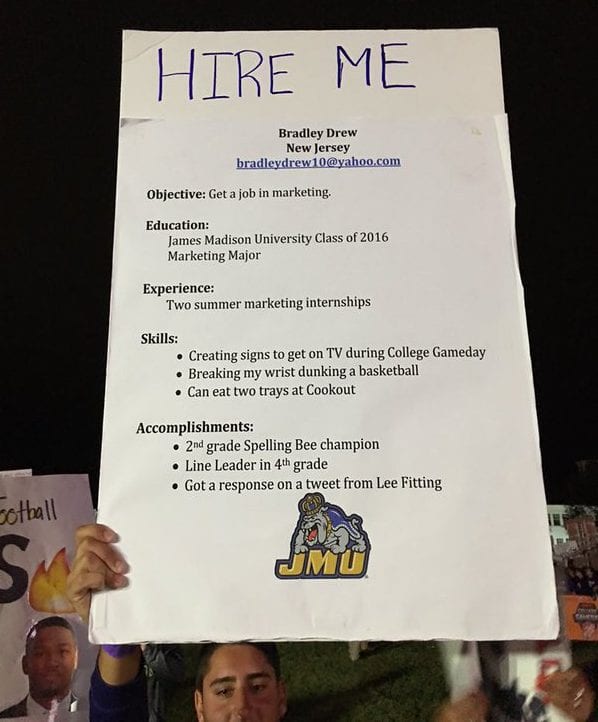 HIRE ME
Bradley Drew
New Jersey
bradleydrew10@yahoo.com
Objective: Get a job in marketing.
Education:
James Madison University Class of 2016
Marketing Major
Experience:
Two summer marketing internships
Skills:
• Creating signs to get on TV during College Gameday
• Breaking my wrist dunking a basketball
• Can eat two trays at Cookout
Accomplishments:
• 2nd grade Spelling Bee champion
• Line Leader in 4th grade
• Got a response on a tweet from Lee Fitting
JMU
ootball
S